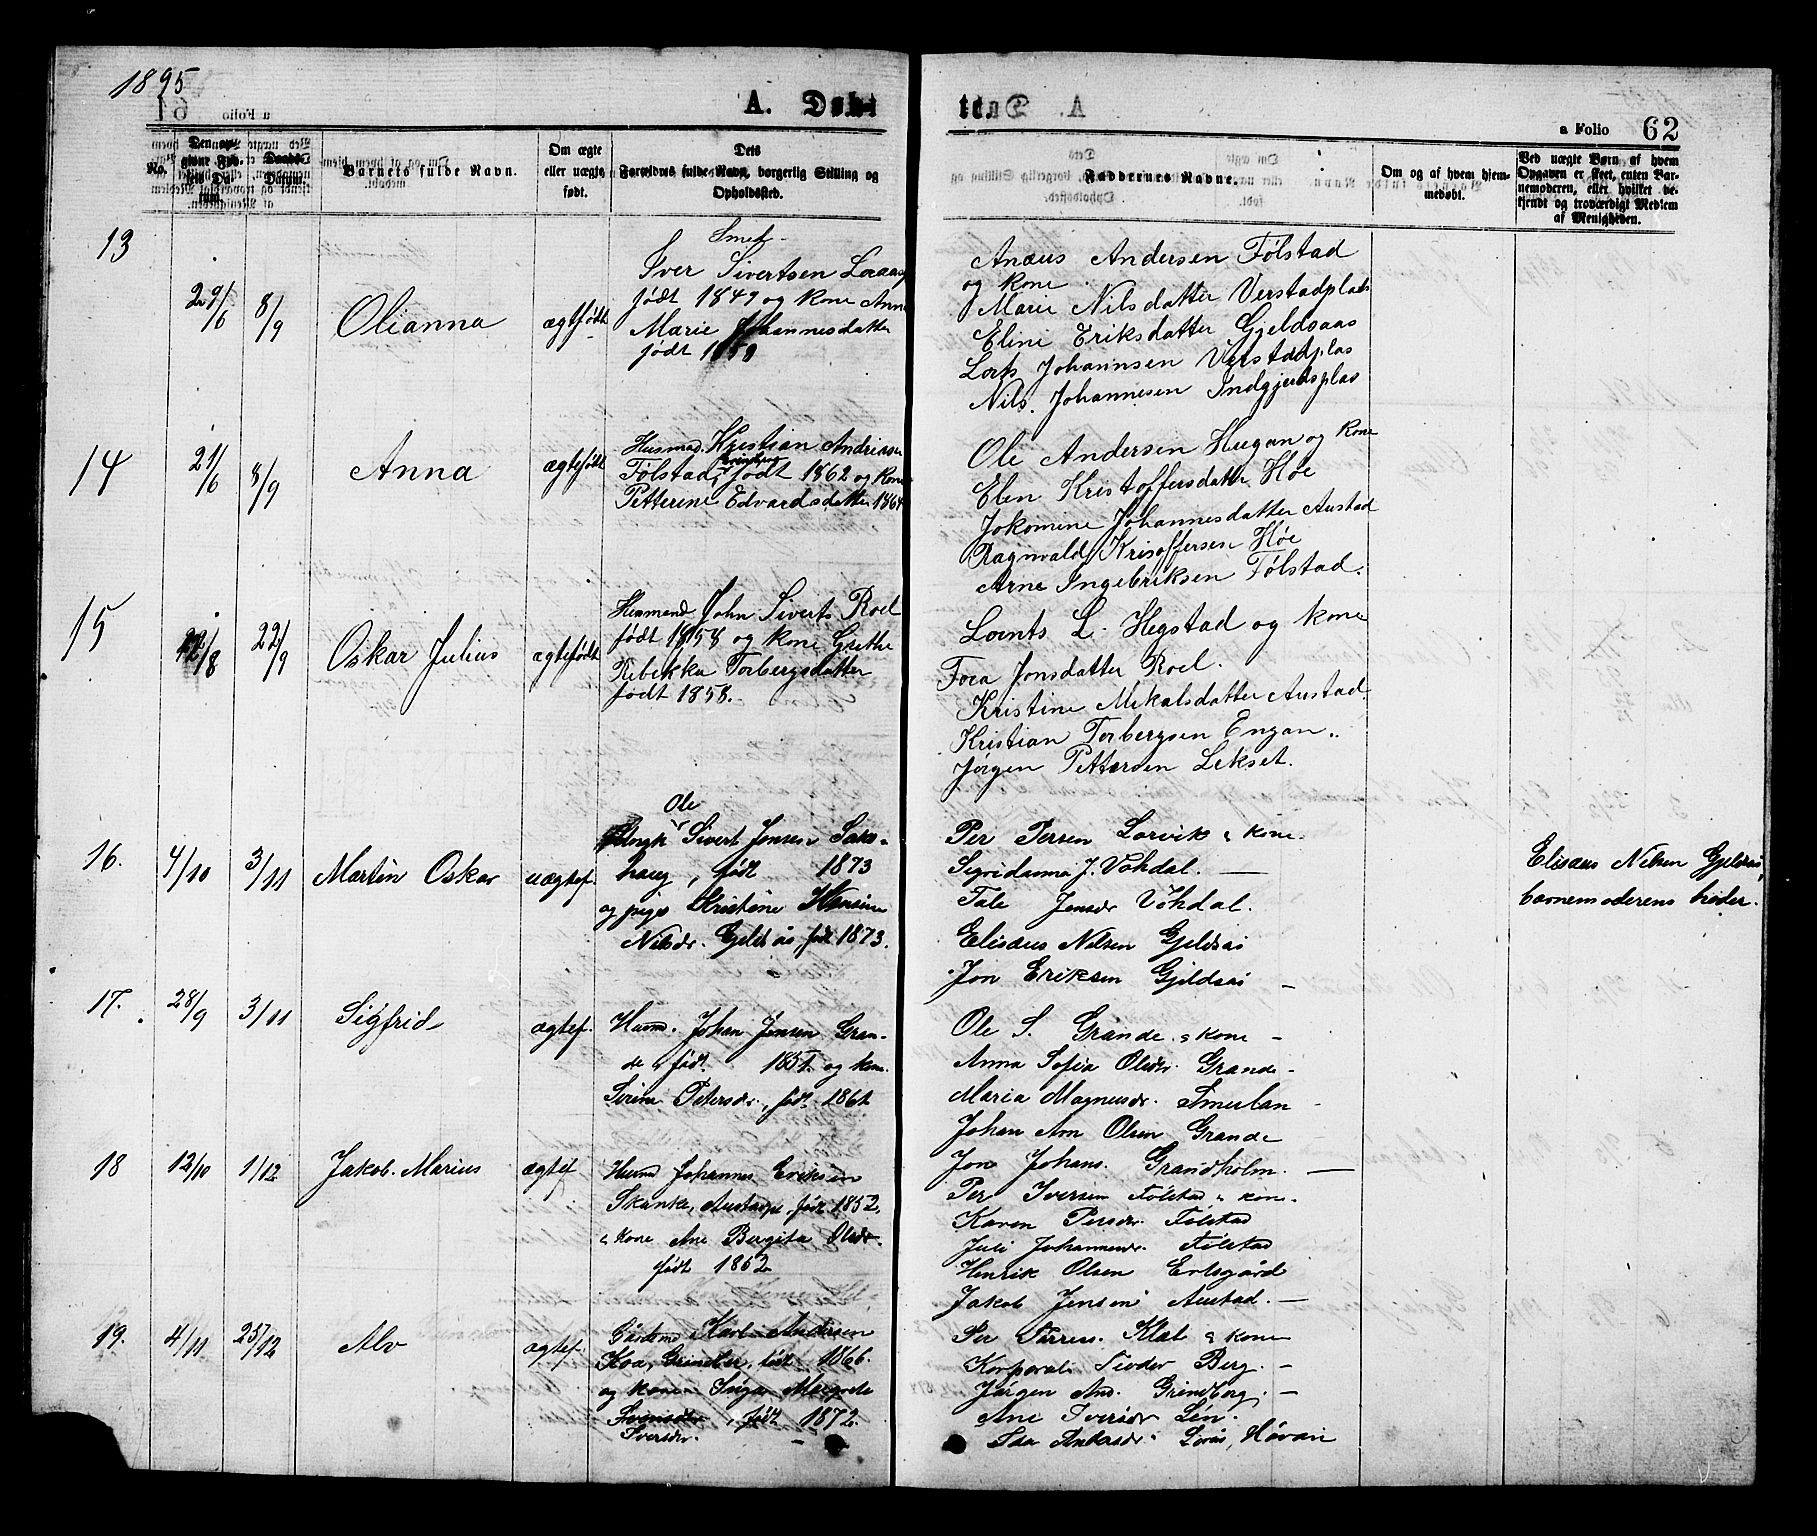 1895
A. Døbt
a Folio 62
No.
Den op-
givne Fød-
sels Da-
tum.
Daabs-
Datum.
Barnets fulde Navn.
Om ægte
eller uægte
født.
Dets
Forældres fulde Navn, borgerlig Stilling og
Opholdssted.
Faddernes Navne.
Om og af hvem hjem-
medøbt.
Ved uægte Børn af hvem
Opgaven er skeet, enten Bar-
nemoderen, eller hvilket be-
kjendt og troværdigt Medlem
af Menigheden.
13
29/6
8/9
Olianna
ægtefødt
Smed
Iver Sivertsen Loraas
født 1849 og kone Anne
Marie Johannesdatter
født 1859
Anæus Andersen Følstad
og kone
Marie Nilsdatter Verstadplads
Eline Eriksdatter Gjeldsaas
Johannsen Verstadplas
Nils Johannesen Indgjerdsplas
14
21/6
8/9
Anna
ægtefødt
Husmd. Kristian Andreasen
Følstad, født 1862 og Kone
Petterine Edvardsdatter 1864
Ole Andersen Hugan og Kone
Elen Kristoffersdatter Høe
Jokomine Johannesdatter Austad
Ragnvald Krisoffersen Høe
Arne Ingebriksen Følstad.
15
22/8
22/9
Oskar Julius
ægtefødt
Husmand John Siverts Roel
født 1858 og kone Grethe
Rebekka Torbergsdatter
født 1858.
Lornts L. Hegstad og kone
Jonsdatter Roel.
Kristine Mikalsdatter Austad
Kristian Torbergsen Engan
Jørgen Pettersen Lekset.
16.
4/10
3/11
Martin Oskar
uægtef.
Ole
Ungk Sivert Jensen Saks-
haug, født 1873
og pige Kristine Hansine
Nilsdr. Gjeldsås, født 1873.
Per Persen Lorvik & kone.
Sigridanna J. Vohdal.
Tale Jensdr Vohdal.
Elisæus Nilsen Gjeldsås
Jon Eriksen Gjeldsås
Elisæus Nilsen Gjeldsås,
barnemoderens broder.
17.
28/9
3/11
Sigfrid
ægtef.
Husmd. Johan Jensen Gran-
de, født 1851. og kone
Sirine Petersdr., født 1861
Ole S. Grande & kone
Anna Sofia Olsdr. Grande
Maria Magnusdr. Smulan
Johan Arn Olsen Grande
Jon Johans. Grandholm.
18
12/10
1/12
Jakob Marius
ægtef
Husmd Johannes Eriksen
Skanke, Austadpl, født 1852,
& kone Ane Bergita Olsdr.
født 1852
Per Iversen Følstad & kone.
Karen Persdr. Følstad
Juli Johannesdr. Følstad
Henrik Olsen Ertsgård
Jakob Jensen Austad.
19.
4/11
25/12
Alv
ægtef.
Gårdmd Karl Andersen
Koa, Grindber, født 1866.
og kone Inga Margrete
Svensdr, født 1872.
Iversdr.
Per Sørens. Klæt & kone
Korporal Teodor Berg.
Jørgen And. Grindberg.
Ane Iversdr Lén.
Ida Andersdr. Lorås, Høvan